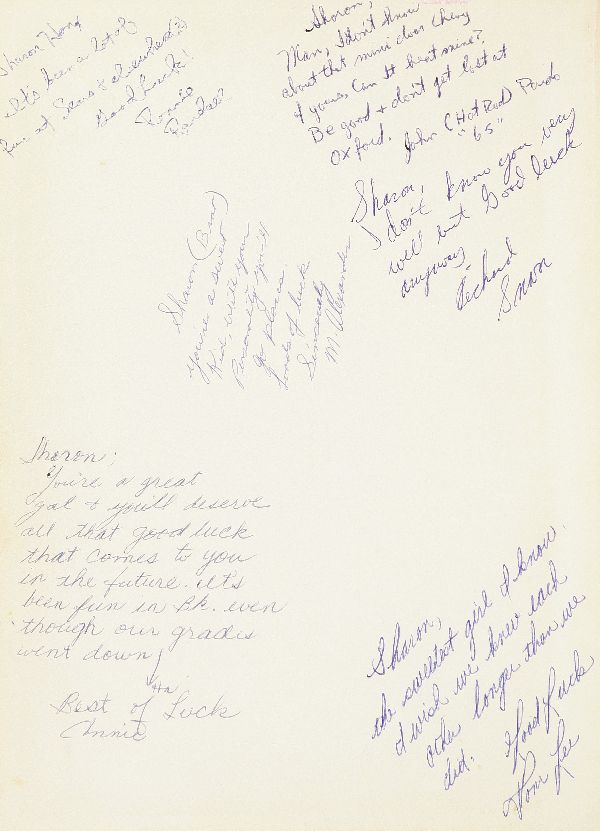 Sharon Hong
It's been a lot of
fun at Sears & elsewhere?
Good luck!
Ronnie
Randall
Sharon,
Man, I don't know
about that mini door Chevy
of yours, Can it beat mine?
Be good & don't get lost at
Oxford.
John (Hot Rod) Pardo
"65"
Sharon,
I don't know you very
well but Good luck
anyway
Richard
Snow
Sharon
you're a sweet
Kid, with your
Personality you'll
go places.
loads of luck
Sincerely
M. Alexander
Sharon;
You're a great
gal & you'll deserve
all that good luck
that comes to you
in the future. It's
been fun in Bk. even
though our grades
went down!
Ha
Best of Luck
Annie
Sharon,
the sweetest girl I know.
I wish we knew each
other longer than we
did.
Good Luck
Tom Lee